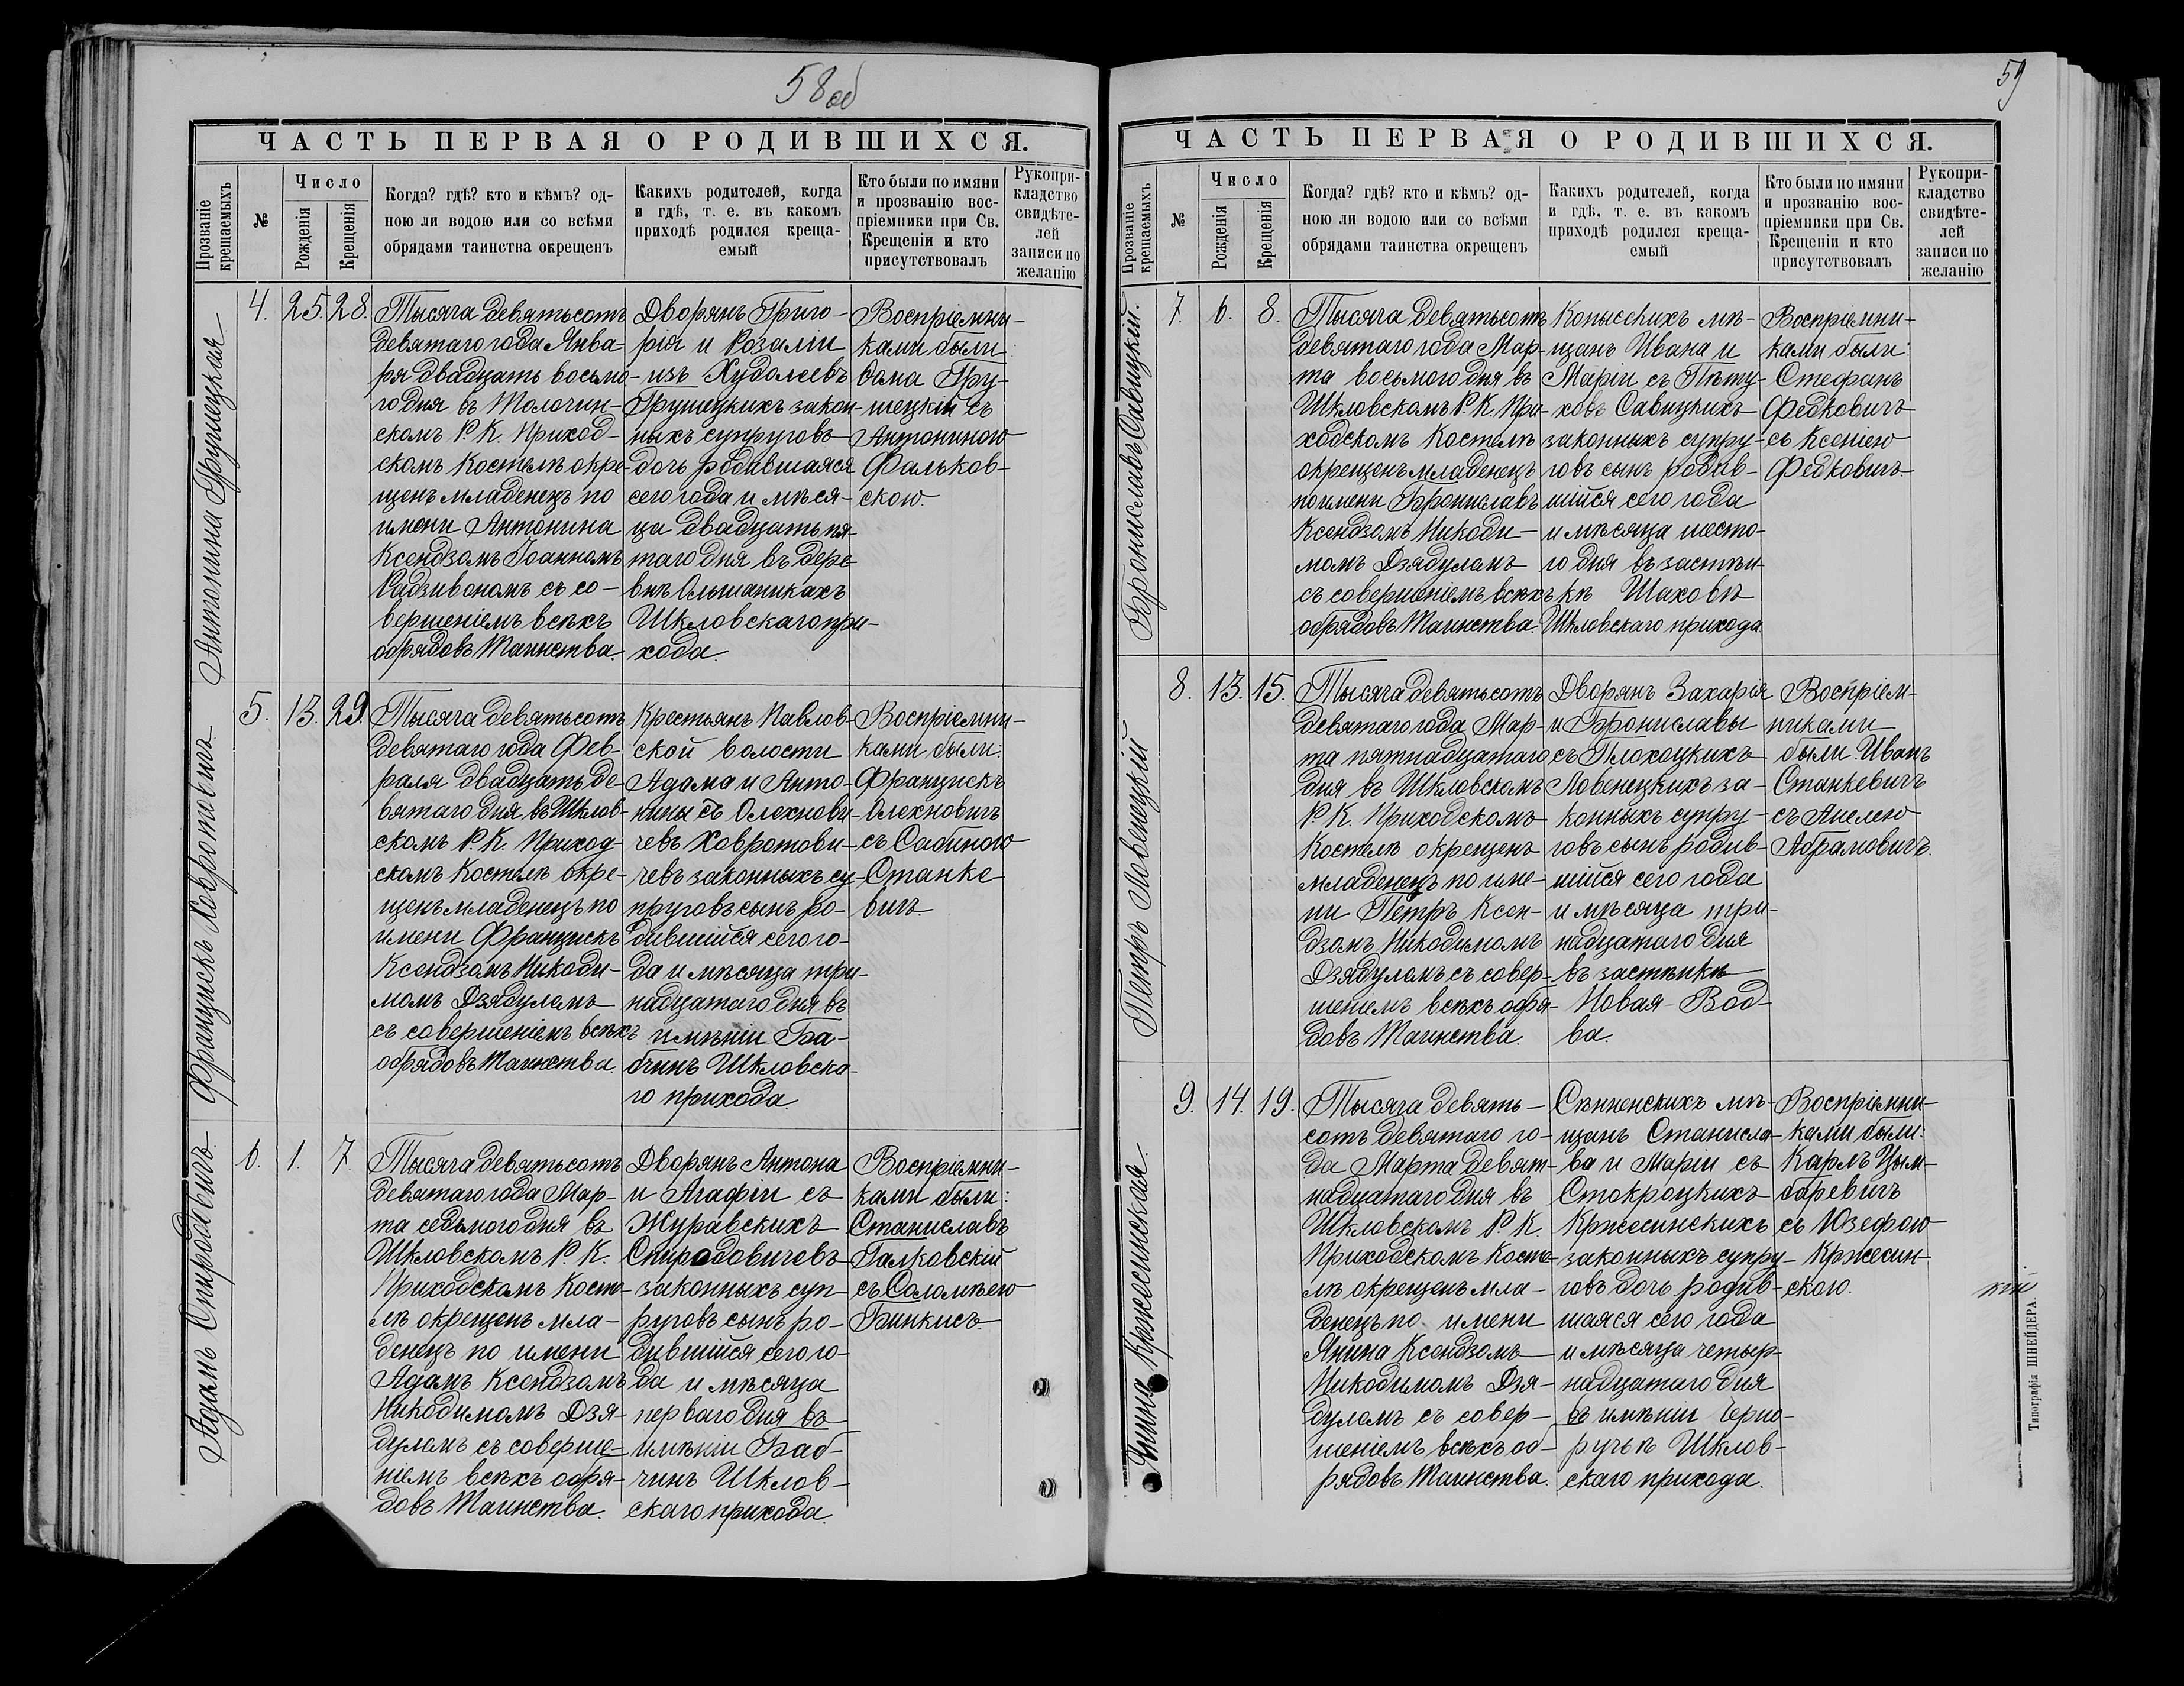 58 об
ЧАСТЬ ПЕРВАЯ О РОДИВШИХСЯ.
Прозваніе крещаемыхъ
№
Число
Рожденія
Крещенія
Когда? гдѣ? кто и кѣмъ? од-
ною ли водою или со всѣми
обрядами таинства окрещенъ
Какихъ родителей, когда
и гдѣ, т. е. въ какомъ
приходѣ родился креща-
емый
Кто были по имяни
и прозванію вос-
пріемники при Св.
Крещеніи и кто
присутствовалъ
Рукопри-
кладство
свидѣте-
лей
записи по
желанію
Антонина Грушецкая
4. 25. 28.
Тысяча девятьсотъ
девятаго года Янва-
ря двадцать восьмо-
го дня въ Толочин-
скомъ Р. К. Приход-
скомъ Костелѣ окре-
щенъ младенецъ по
имени Антонина
Ксендзомъ Іоанномъ
Радзивономъ съ со-
вершеніемъ всѣхъ
обрядовъ Таинства.
Дворянъ Григо-
рія и Розаліи
изъ Худолеевъ
Грушецкихъ закон-
ныхъ супруговъ
дочь родившаяся
сего года и мѣся-
ца двадцать пя-
таго дня въ дере-
внѣ Ольшаникахъ
Шкловскаго при-
хода.
Воспріемни-
ками были
Ѳома Гру-
шецкій съ
Антониною
Фальков-
скою.
Францискъ Ховротовичъ
5. 13. 29.
Тысяча девятьсотъ
девятаго года Фев-
раля двадцать де-
вятаго дня въ Шклов-
скомъ Р. К. Приход-
скомъ Костелѣ окре-
щенъ младенецъ по
имени Францискъ
Ксендзомъ Никоди-
момъ Дзядуломъ
съ совершеніемъ всѣхъ
обрядовъ Таинства.
Крестьянъ Павлов-
ской волости
Адама и Анто-
нины съ Олехнови-
чевъ Ховротови-
чевъ законныхъ су-
пруговъ сынъ ро-
дившійся сего го-
да и мѣсяца три-
надцатаго дня въ
имѣніи Ба-
бчинъ Шкловска-
го прихода.
Воспріемни-
ками были:
Францискъ
Олехновичъ
съ Сабиною
Станке-
вичъ
Адамъ Спиродовичъ
6. 1. 7.
Тысяча девятьсотъ
девятаго года Мар-
та седьмого дня въ
Шкловскомъ Р. К.
Приходскомъ Косте-
лѣ окрещенъ мла-
денецъ по имени
Адамъ Ксендзомъ
Никодимомъ Дзя-
дуломъ съ соверше-
ніемъ всѣхъ обря-
довъ Таинства.
Дворянъ Антона
и Агафіи съ
Журавскихъ
Спиродовичевъ
законныхъ суп-
руговъ сынъ ро-
дившійся сего го-
да и мѣсяца
перваго дня въ
имѣніи Баб-
чинъ Шклов-
скаго прихода.
Воспріемни-
ками были:
Станиславъ
Галковскій
съ Саломѣею
Бинкисъ
59
ЧАСТЬ ПЕРВАЯ О РОДИВШИХСЯ.
Прозваніе крещаемыхъ
№
Число
Рожденія
Крещенія
Когда? гдѣ? кто и кѣмъ? од-
ною ли водою или со всѣми
обрядами таинства окрещенъ
Какихъ родителей, когда
и гдѣ, т. е. въ какомъ
приходѣ родился креща-
емый
Кто были по имяни
и прозванію вос-
пріемники при Св.
Крещеніи и кто
присутствовалъ
Рукопри-
кладство
свидѣте-
лей
записи по
желанію
Брониславъ Савицкій.
7. 6. 8.
Тысяча девятьсотъ
девятаго года Мар-
та восьмого дня въ
Шкловскомъ Р. К. При-
ходскомъ Костелѣ
окрещенъ младенецъ
по имени Брониславъ
Ксендзомъ Никоди-
момъ Дзядуломъ
съ совершеніемъ всѣхъ
обрядовъ Таинства.
Копысскихъ мѣ-
щанъ Ивана и
Маріи съ Пѣту-
ховъ Савицкихъ
законныхъ супру-
говъ сынъ родив-
шійся сего года
и мѣсяца шесто-
го дня въ застѣн-
кѣ Шаховѣ
Шкловскаго прихода
Воспріемни-
ками были:
Стефанъ
Федковичъ
съ Ксеніею
Федковичъ.
Петръ Ловенецкій
8. 13. 15.
Тысяча девятьсотъ
девятаго года Мар-
та пятнадцатаго
дня въ Шкловскомъ
Р. К. Приходскомъ
Костелѣ окрещенъ
младенецъ по име-
ни Петръ Ксен-
дзомъ Никодимомъ
Дзядуломъ съ совер-
шеніемъ всѣхъ обря-
довъ Таинства.
Дворянъ Захарія
и Брониславы
съ Плохоцкихъ
Ловенецкихъ за-
конныхъ супру-
говъ сынъ родив-
шійся сего года
и мѣсяца три-
надцатаго дня
въ застѣнкѣ
Новая-Вод-
ва.
Воспріем-
никами
были: Иванъ
Станкевичъ
съ Анелею
Абрамовичъ.
Янина Кржесинская.
9. 14. 19.
Тысяча девять-
сотъ девятаго го-
да Марта девят-
надцатаго дня въ
Шкловскомъ Р. К.
Приходскомъ Косте-
лѣ окрещенъ мла-
денецъ по имени
Янина Ксендзомъ
Никодимомъ Дзя-
дуломъ съ совер-
шеніемъ всѣхъ об-
рядовъ Таинства.
Сѣнненскихъ мѣ-
щанъ Станисла-
ва и Маріи съ
Стокроцкихъ
Кржесинскихъ
законныхъ супру-
говъ дочь родив-
шаяся сего года
и мѣсяца четыр-
надцатаго дня
въ имѣніи Черно-
ручьѣ Шклов-
скаго прихода.
Воспріемни-
ками были:
Карлъ Цым-
баревичъ
съ Юзефою
Кржесин-
скою.
Типографія ШНЕЙДЕРА.